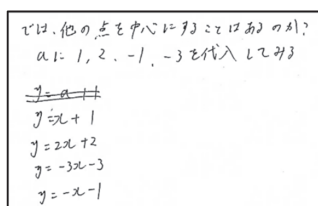 では、他の点を中心にすることはあるのか?
aに 1, 2, -1, -3を代入してみる
y=x+1
y=2x+2
y=-3x-3
y=-x-1